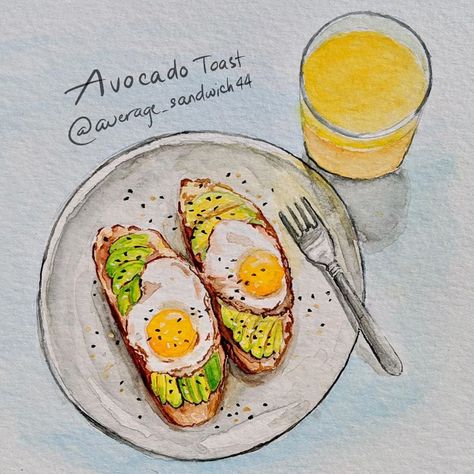 Avocado Toast
@average_sandwich44